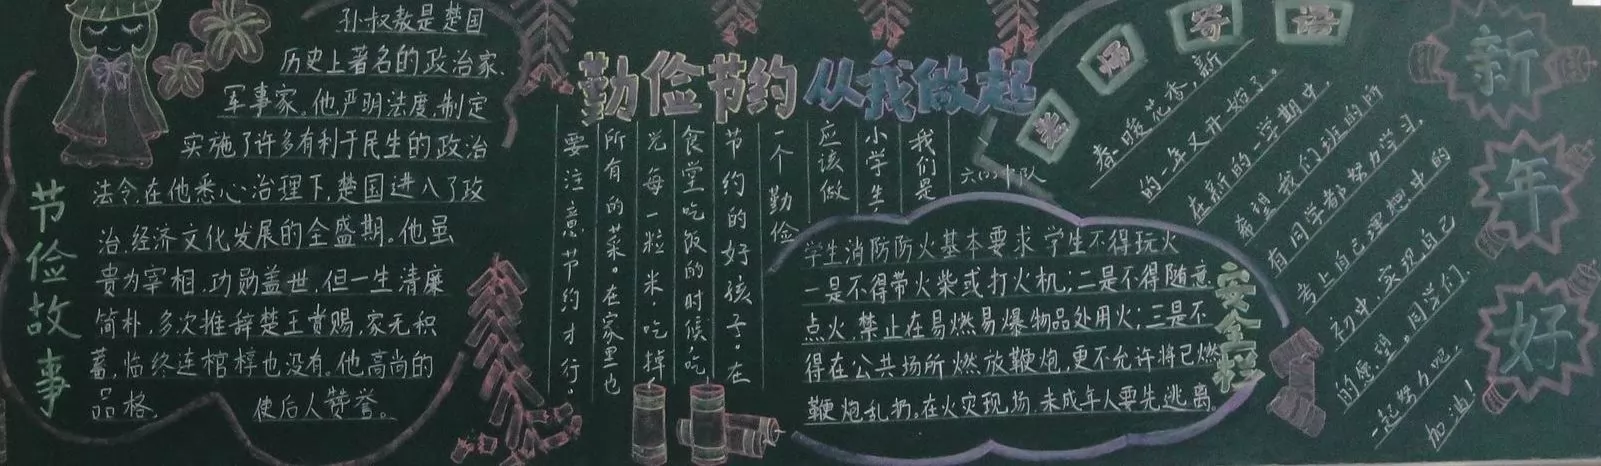 勤俭节约 从我做起
节俭故事
孙叔敖是楚国
历史上著名的政治家、
军事家。他严明法度,制定
实施了许多有利于民生的政治
法令,在他悉心治理下,楚国进入了政
治,经济文化发展的全盛期。他虽
贵为宰相,功勋盖世,但一生清廉
简朴,多次推辞楚王赏赐,家无积
蓄,临终连棺椁也没有。他高尚的
品格, 使后人赞誉。
我们是
小学生,
应该做
一个勤俭
节约的好孩子。在
食堂吃饭的时候,吃
光每一粒米,吃掉
所有的菜。在家里也
要注意节约才行。
六(4)中队
安全栏
学生消防防火基本要求 学生不得玩火
一是不得带火柴或打火机;二是不得随意
点火,禁止在易燃易爆物品处用火;三是不
得在公共场所燃放鞭炮,更不允许将已燃
鞭炮乱扔。在火灾现场,未成年人要先逃离。
寄语
春暖花香,新
的一年又开始了。
在新的一学期中,
希望我们班的所
有同学都努力学习,
考上自己理想中的
初中,实现自己
的愿望。同学们,
一起努力吧,
加油!
新
年
好